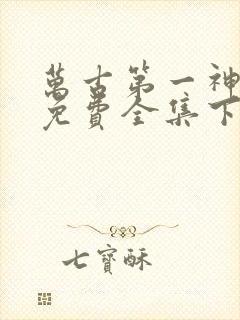 萬古第一神
免費全集下
七寶酥